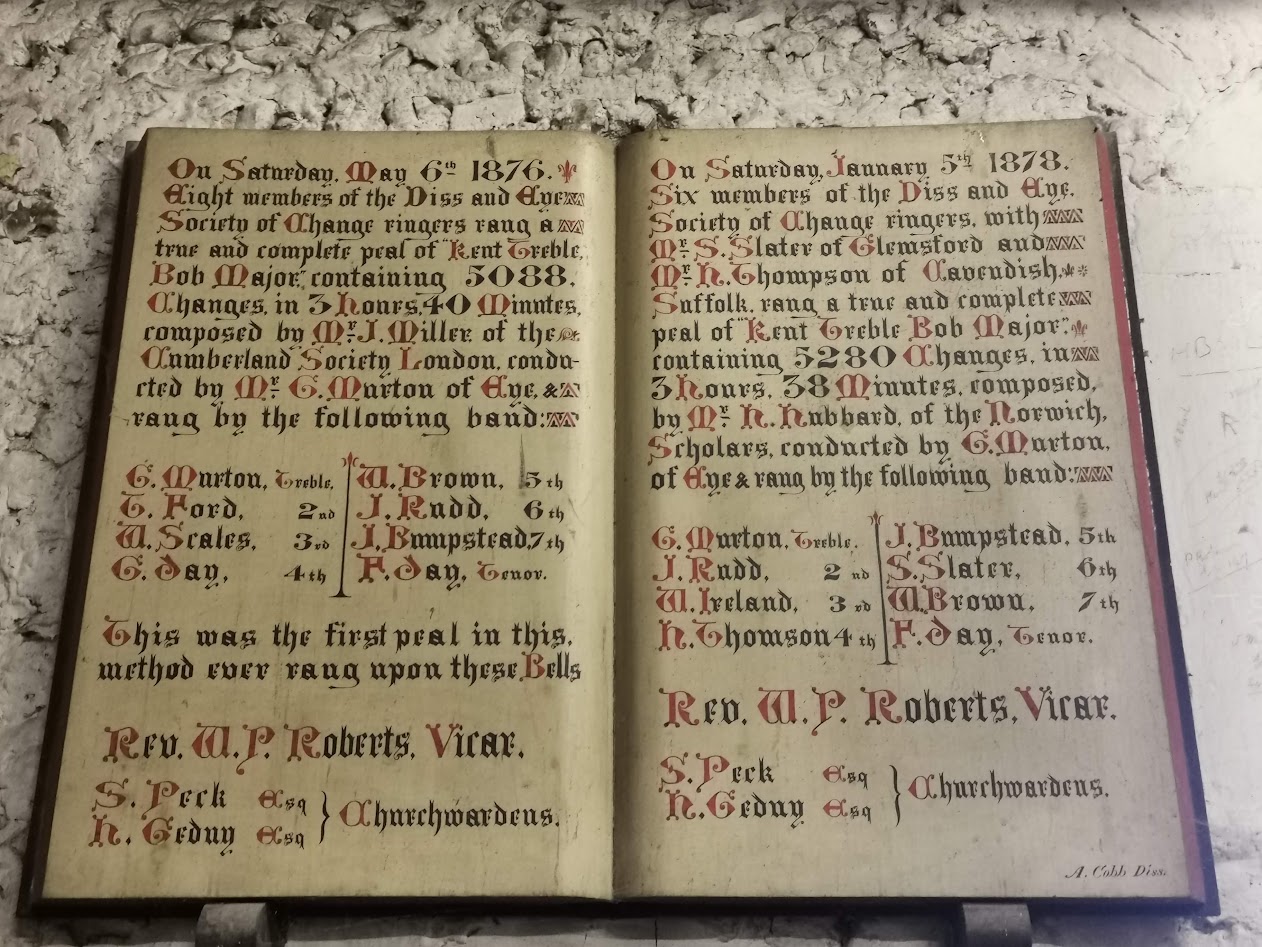 On Saturday, May 6th 1876.
Eight members of the Diss and Eye
Society of Change ringers rang a
true and complete peal of "Kent Treble,
Bob Major," containing 5088,
Changes, in 3 Hours, 40 Minutes,
composed by Mr. J. Miller, of the
Cumberland Society London, condu-
cted by Mr. G. Murton of Eye, &
rang by the following band:
G. Murton, Treble, W. Brown, 5th
T. Ford, 2nd J. Rudd, 6th
W. Scales, 3rd J. Bumpstead, 7th
G. Day, 4th F. Day, Tenor.
This was the first peal in this,
method ever rang upon these Bells
Rev. W. P. Roberts, Vicar.
S. Peck Esq
N. Gedny Esq } Churchwardens.
On Saturday, January 5th 1878.
Six members of the Diss and Eye,
Society of Change ringers, with
Mr. S. Slater of Glemsford and
Mr. N. Thompson of Cavendish,
Suffolk, rang a true and complete
peal of "Kent Treble Bob Major",
containing 5280 Changes, in
3 Hours, 38 Minutes, composed,
by Mr. N. Hubbard, of the Norwich,
Scholars, conducted by G. Murton,
of Eye & rang by the following band:
G. Murton, Treble, J. Bumpstead, 5th
J. Rudd, 2nd S. Slater, 6th
W. Ireland, 3rd W. Brown, 7th
N. Thomson 4th F. Day, Tenor.
Rev. W. P. Roberts, Vicar.
S. Peck Esq
N. Gedny Esq } Churchwardens.
A. Cobb Diss.